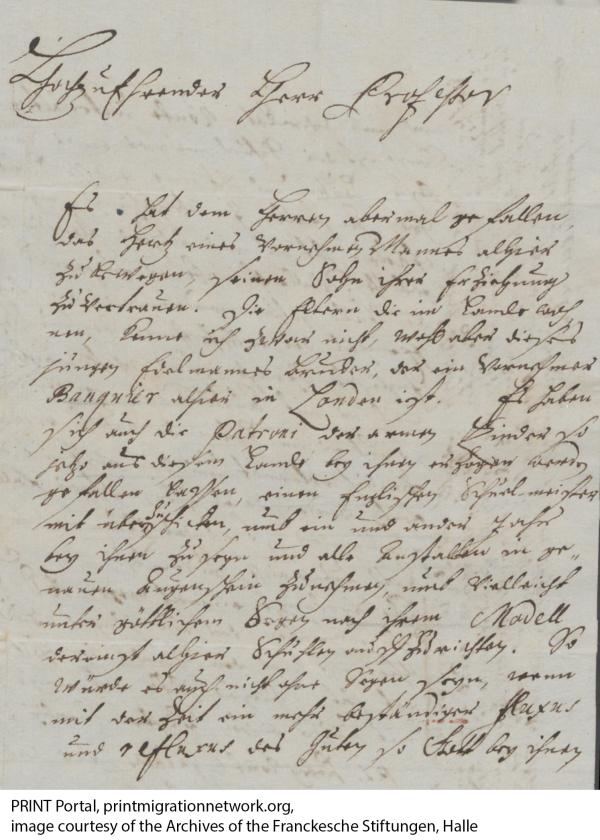 Hochzuehrender Herr Professor
Es hat dem Herren abermal gefallen,
das Hertz eines Vornehmen Mannes alhier
zu bewegen, seinen Sohn ihrer Erziehung
zu vertrauen. Die Eltern die im Lande woh
nen, kenne ich zwar nicht, wohl aber dieses
jungen Edelmannes Bruder, der ein Vornehmer
Banquier alhier in London ist. Es haben
sich auch die Patroni der armen Kinder so
jetzo aus diesem Lande bey ihnen erzogen werden
gefallen lassen, einen Englischen Schulmeister
mit überzuschicken, umb ein und ander Jahr
bey ihnen zu seyn und alle Anstalten in ge-
nauen Augenschein zunehmen, umb vielleicht
unter göttlichem Segen nach ihrem Modell
dereinst alhier Schuhlen auffzurichten. So
würde es auch nicht ohne Segen seyn, wenn
mit der Zeit ein mehr beständiger fluxus
und refluxus des Guten so Gott bey ihnen
PRINT Portal, printmigrationnetwork.org,
image courtesy of the Archives of the Franckesche Stiftungen, Halle